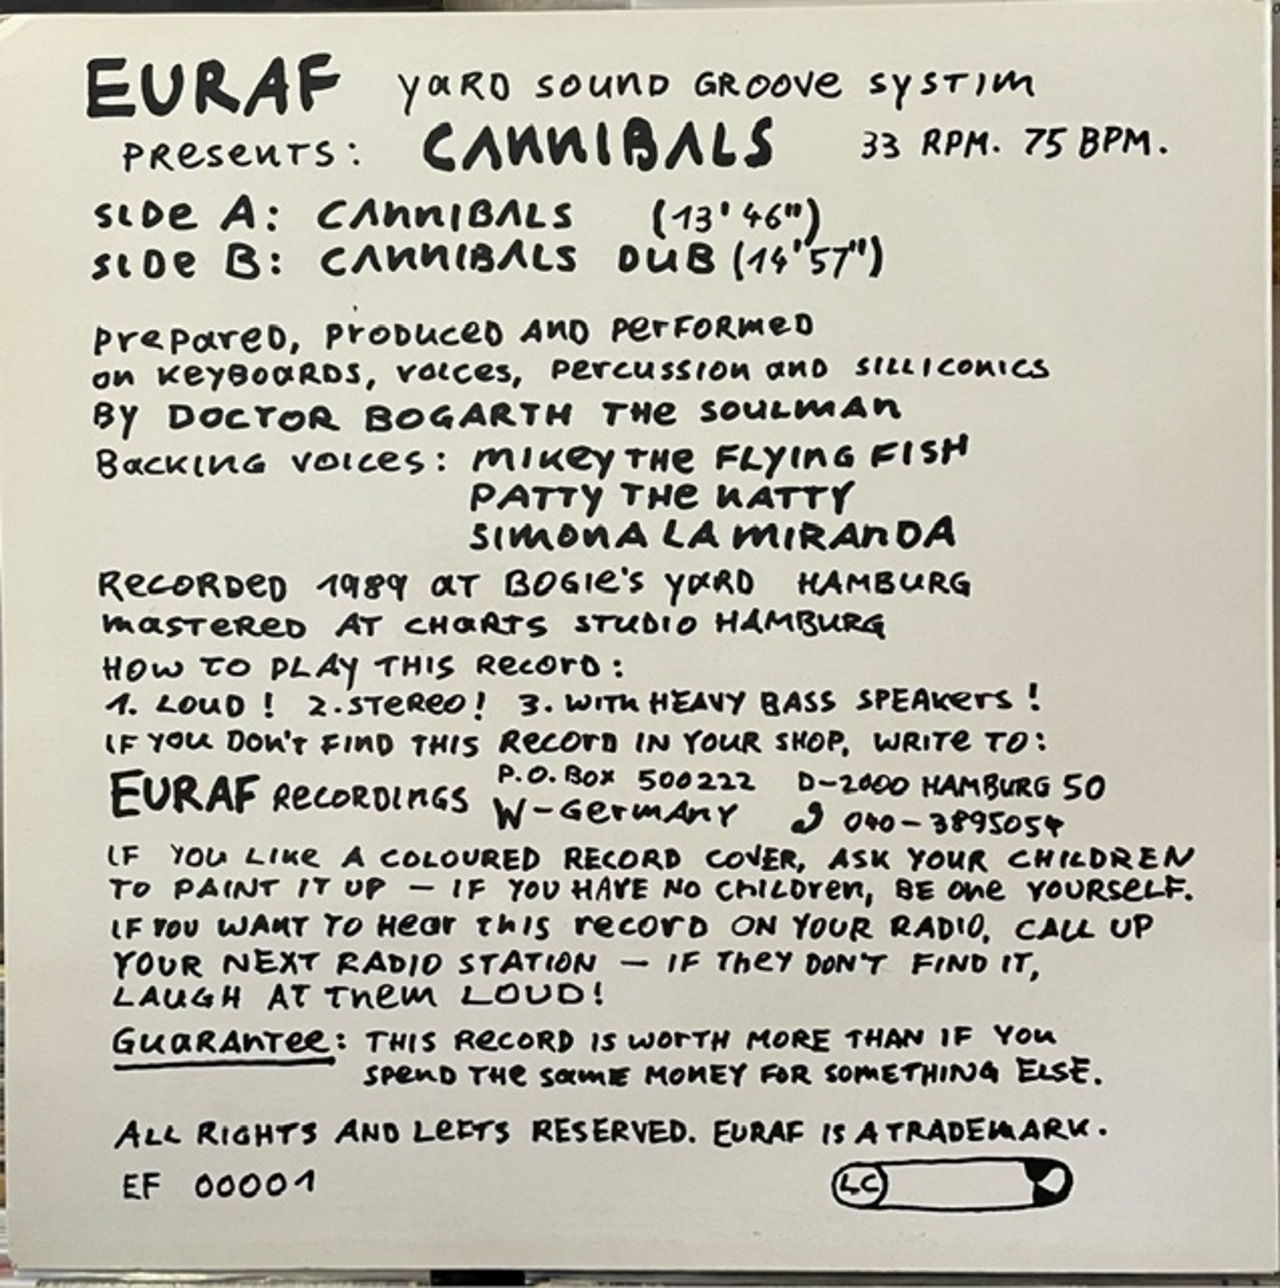 EURAF YARD SOUND GROOVE SYSTIM
PRESENTS: CANNIBALS 33 RPM. 75 BPM.
SIDE A: CANNIBALS (13'46")
SIDE B: CANNIBALS DUB (14'57")
PREPARED, PRODUCED AND PERFORMED
ON KEYBOARDS, VOICES, PERCUSSION AND SILLICONICS
BY DOCTOR BOGARTH THE SOULMAN
BACKING VOICES: MIKEY THE FLYING FISH
PATTY THE NATTY
SIMONA LA MIRANDA
RECORDED 1989 AT BOGIE'S YARD HAMBURG
MASTERED AT CHARTS STUDIO HAMBURG
HOW TO PLAY THIS RECORD:
1. LOUD! 2. STEREO! 3. WITH HEAVY BASS SPEAKERS!
IF YOU DON'T FIND THIS RECORD IN YOUR SHOP, WRITE TO:
EURAF RECORDINGS P.O. BOX 500222 D-2000 HAMBURG 50
W-GERMANY 040-3895054
IF YOU LIKE A COLOURED RECORD COVER, ASK YOUR CHILDREN
TO PAINT IT UP – IF YOU HAVE NO CHILDREN, BE ONE YOURSELF.
IF YOU WANT TO HEAR THIS RECORD ON YOUR RADIO, CALL UP
YOUR NEXT RADIO STATION – IF THEY DON'T FIND IT,
LAUGH AT THEM LOUD!
GUARANTEE: THIS RECORD IS WORTH MORE THAN IF YOU
SPEND THE SAME MONEY FOR SOMETHING ELSE.
ALL RIGHTS AND LEFTS RESERVED. EURAF IS A TRADEMARK.
EF 00001 LC